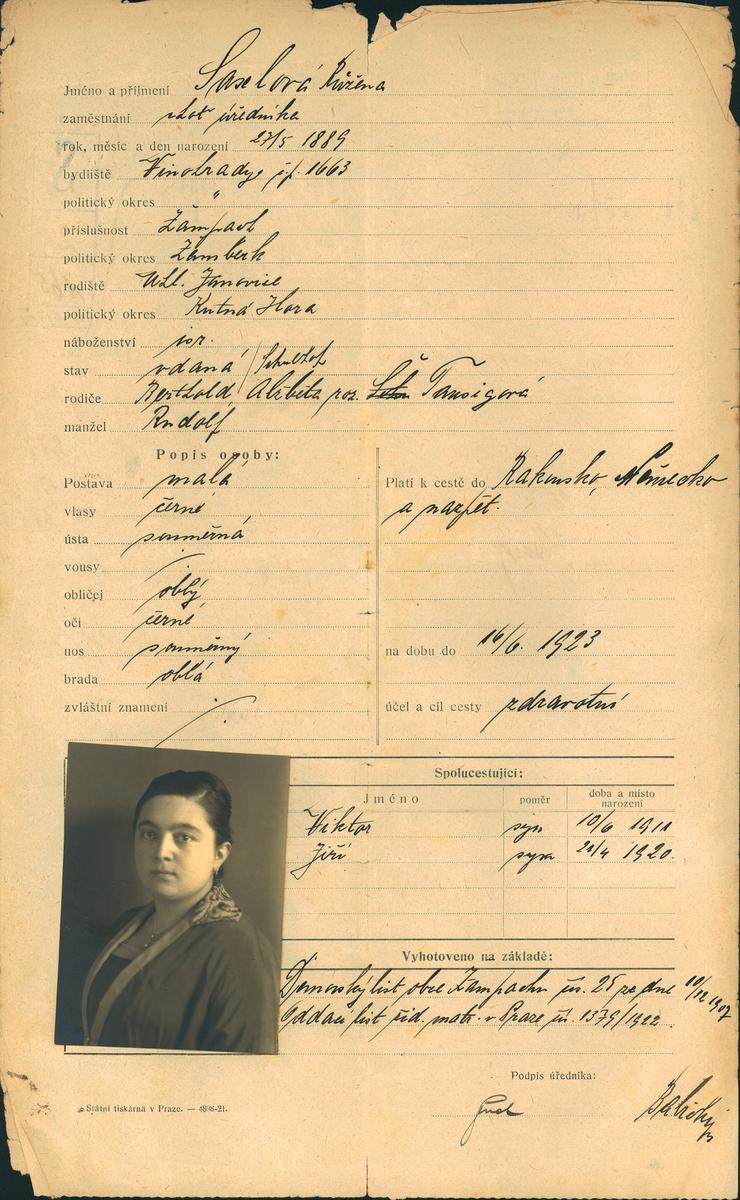 Jméno a příjmení Saxlová Růžena
zaměstnání choť úředníka
rok, měsíc a den narození 27/5 1889
bydliště Vinohrady čp. 1663
politický okres "
příslušnost Žampach
politický okres Žamberk
rodiště Uhl. Janovice
politický okres Kutná Hora
náboženství isr.
stav vdaná /Schulhof
rodiče Berthold/ Alžběta roz. Tausigová
manžel Rudolf
Popis osoby:
Postava malá
vlasy černé
ústa souměrná
vousy /.
obličej oblý
oči černé
nos souměrný
brada oblá
zvláštní znamení /.
Platí k cestě do Rakouska, Německo
a nazpět.
na dobu do 16/6. 1923
účel a cíl cesty zdravotní
Spolucestující:
Jméno poměr doba a místo narození
Viktor syn 10/6 1911
Jiří syn 1920.
Vyhotoveno na základě:
Domovský list obce Žampachu čís. 25 ze dne 10/12 1907
Oddací list žid. matr. v Praze čís. 1379/1922
Podpis úředníka:
Státní tiskárna v Praze. — 4898-21.